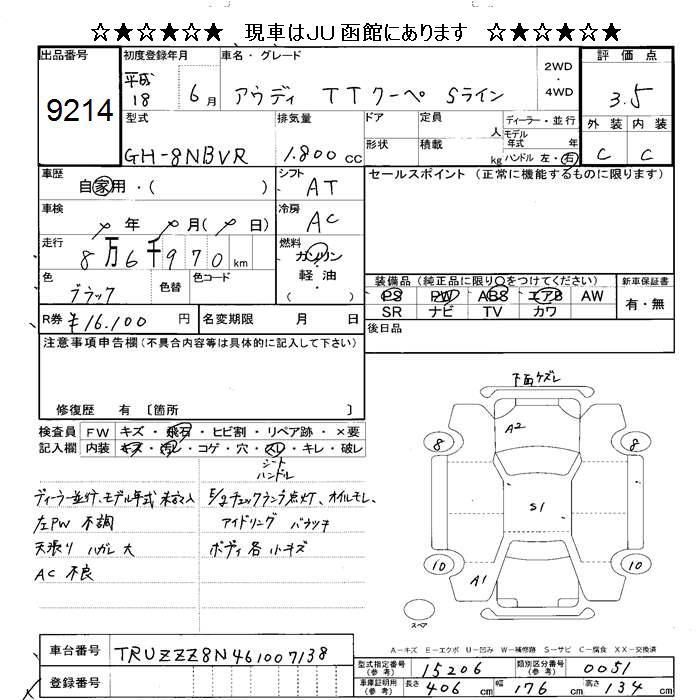 ☆★☆★☆★ 現車はJU函館にあります ☆★☆★☆★
出品番号 初度登録年月 車名・グレード 2WD・4WD 評価点
9214 平成18 6月 アウディ TTクーペ Sライン 3.5
型式 排気量 ドア 定員 人 ディーラー・並行 外装 内装
GH-8NBVR 1.800cc 形状 積載 kg モデル年式 年 ハンドル 左・右 C C
車歴 自家用・( ) シフト AT セールスポイント (正常に機能するものに限ります)
車検 年 月( 日) 冷房 AC
走行 8万6千970km 燃料 ガソリン・軽油 ( )
色 ブラック 色替 色コード
装備品 (純正品に限り○をつけてください) 新車保証書
PS PW ABS エアB AW 有・無
SR ナビ TV カワ
R券 ¥16.100円 名変期限 月 日 後日品
注意事項申告欄 (不具合内容等は具体的に記入して下さい)
修復歴 有 〔箇所 〕
検査員記入欄 FW キズ・飛石・ヒビ割・リペア跡・×要
内装 キズ・汚レ・コゲ・穴・スレ・キレ・破レ
シート
ハンドル
ディーラー並行、モデル年式 未記入
左PW 不調
天張り ハガレ 大
AC 不良
E/gチェックランプ点灯、オイルモレ、
アイドリング バラツキ
ボディ各小キズ
下面ケズレ
A2
8 8
S1
10 10
A1
スペア
A-キズ E-エクボ U-凹み W-補修跡 S-サビ C-腐食 XX-交換済
車台番号 TRUZZZ8N461007138
登録番号
型式指定番号(参考) 15206 類別区分番号(参考) 0051
車庫証明用(参考) 長さ 406cm 幅 176cm 高さ 134cm